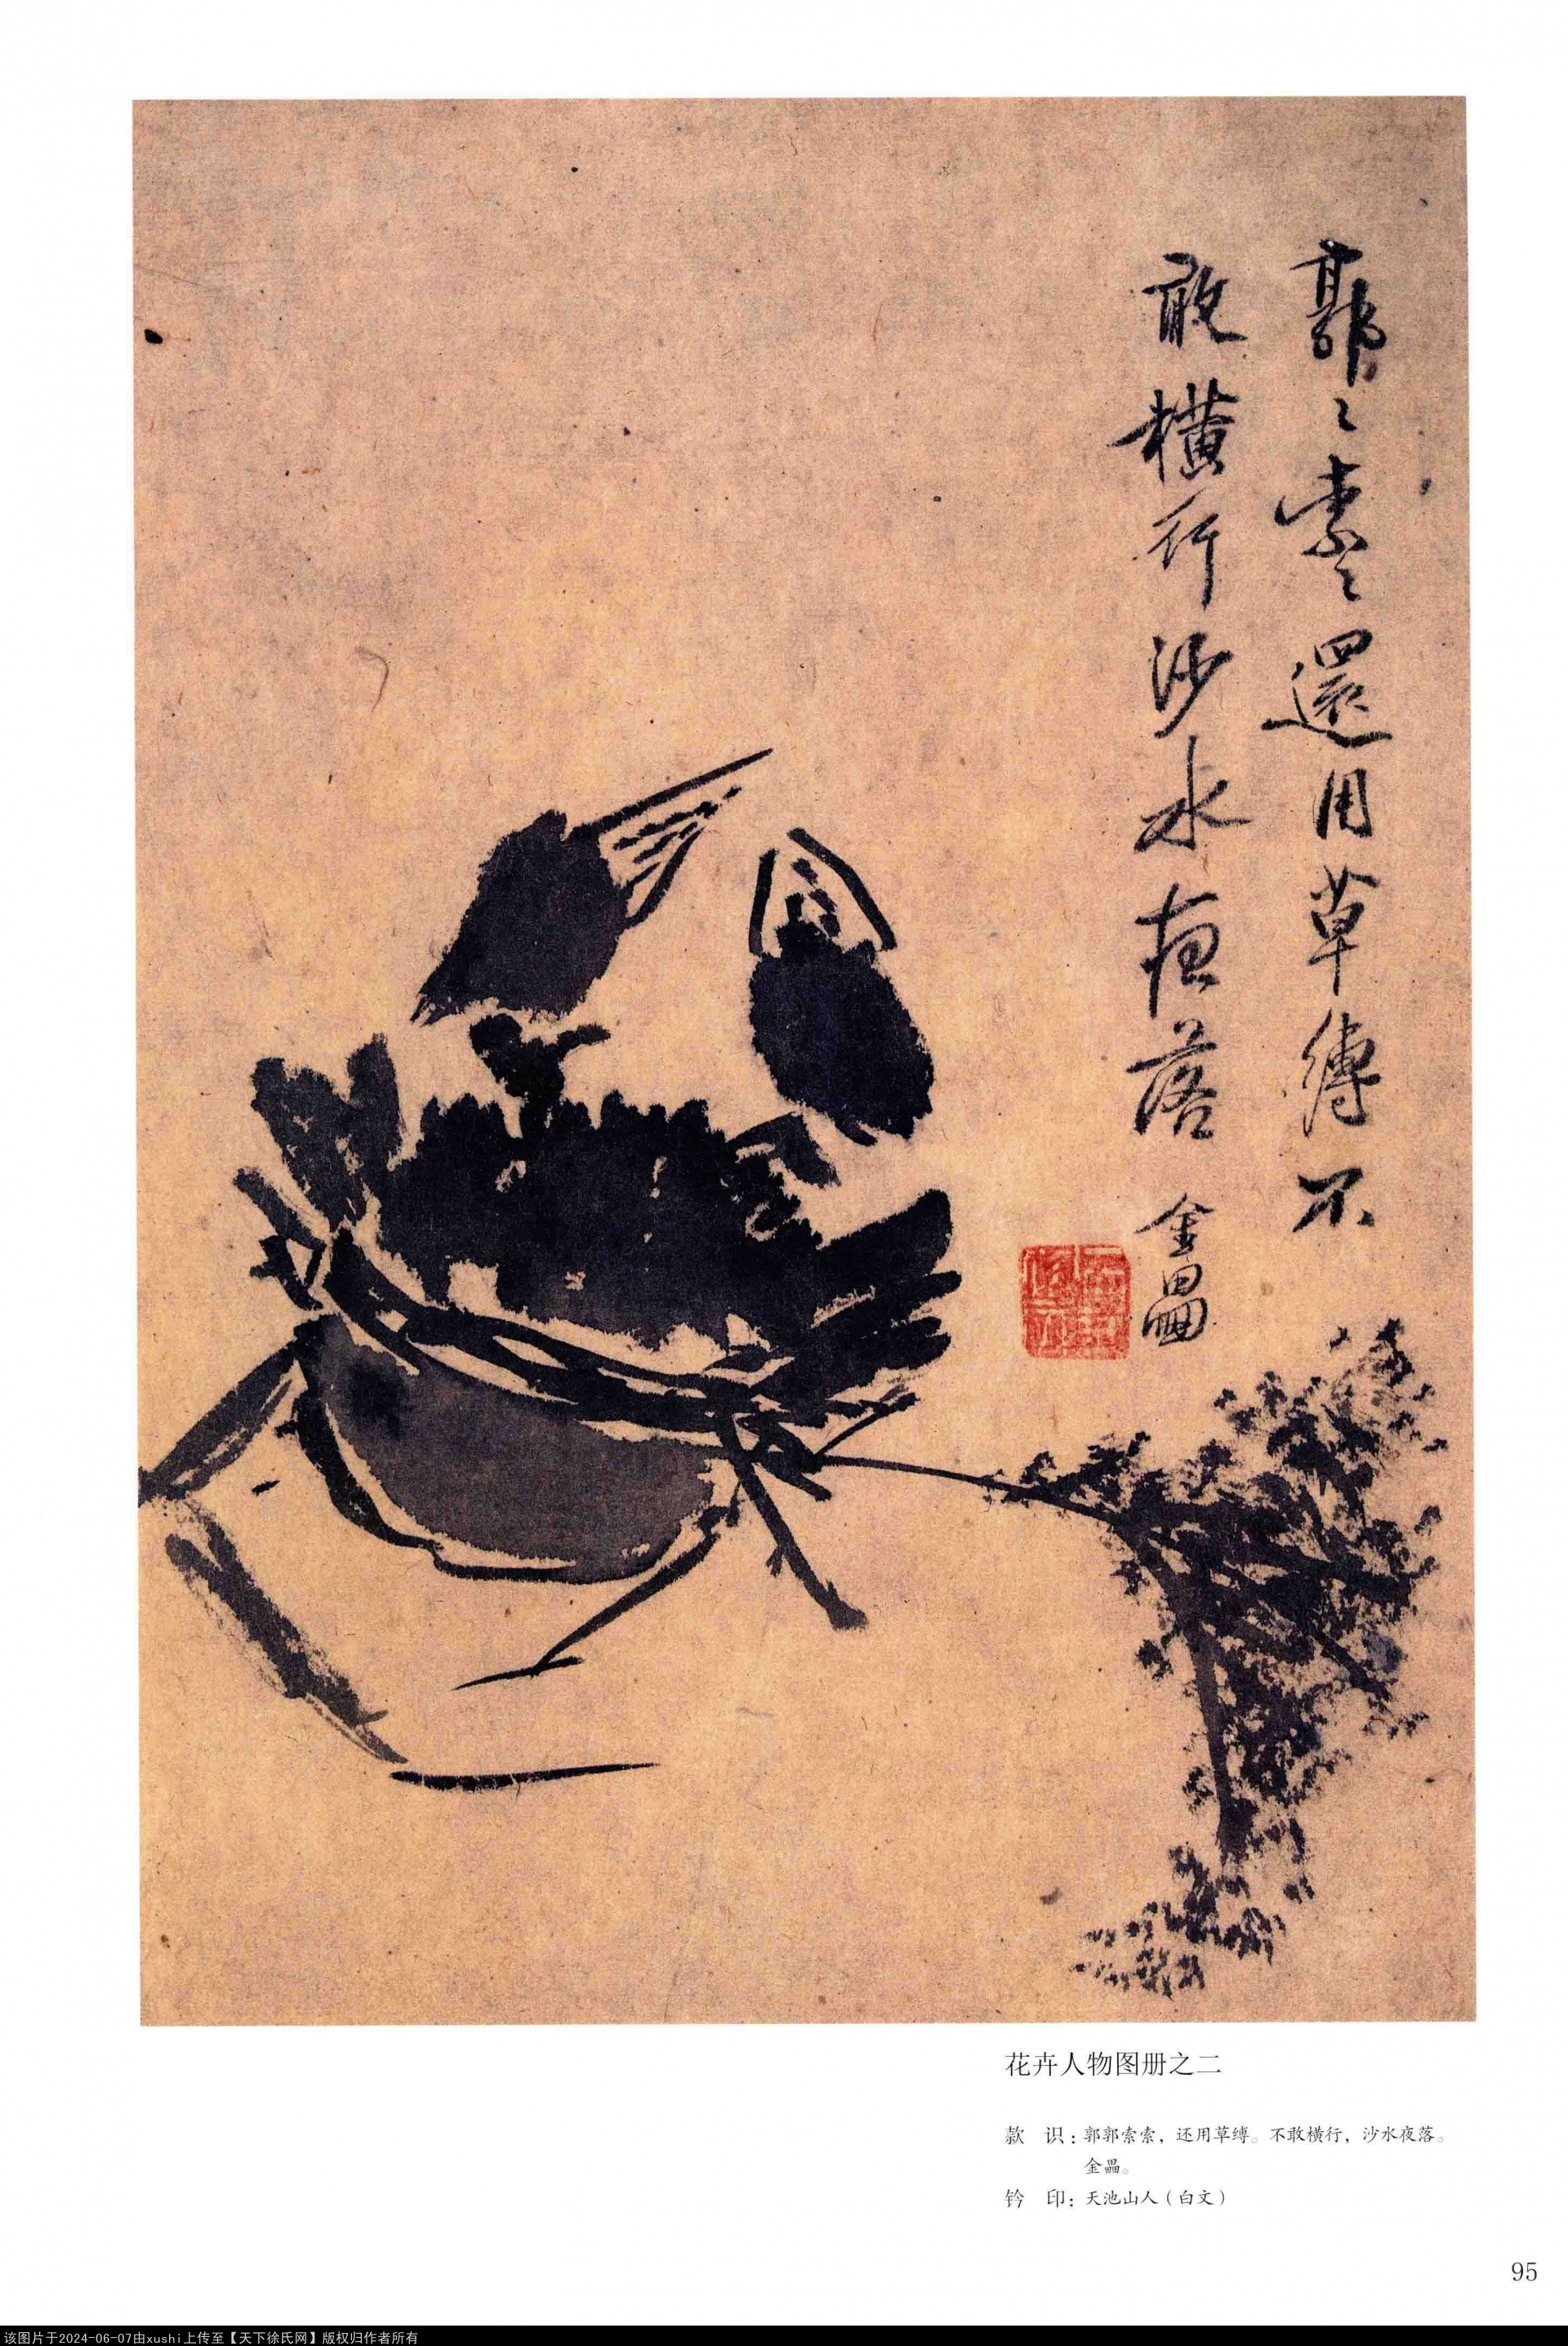 郭〻索〻還用草縛不
敢橫行沙水夜落 金畾
花卉人物图册之二
款 识：郭郭索索，还用草缚。不敢横行，沙水夜落。
金畾。
钤 印：天池山人（白文）
95
该图片于2024-06-07由xushi上传至【天下徐氏网】版权归作者所有